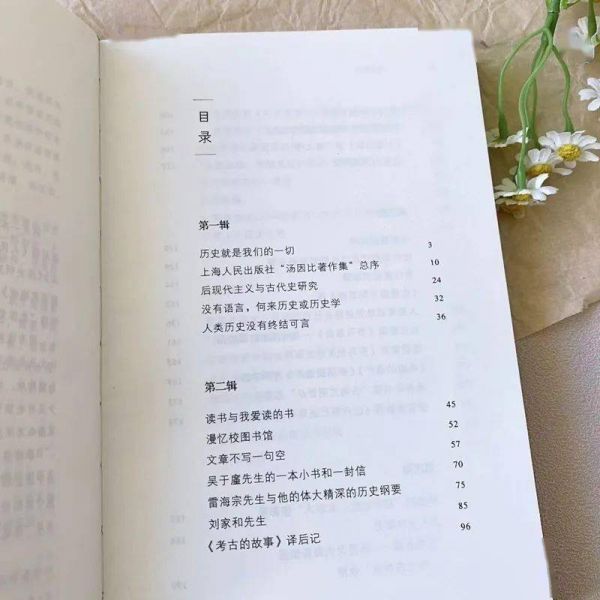 目录
第一辑
历史就是我们的一切 3
上海人民出版社“汤因比著作集”总序 10
后现代主义与古代史研究 24
没有语言，何来历史或历史学 32
人类历史没有终结可言 36
第二辑
读书与我爱读的书 45
漫忆校图书馆 52
文章不写一句空 57
吴于廑先生的一本小书和一封信 70
雷海宗先生与他的体大精深的历史纲要 75
刘家和先生 85
《考古的故事》译后记 96